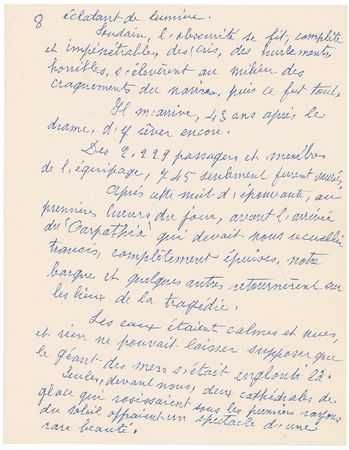 8 éclatant de lumière.
Soudain, l'obscurité se fit, complète
et impénétrable, des cris, des hurlements
horribles, s'élevèrent au milieu des
craquements du navire, puis ce fut tout.
Il m'arrive, 43 ans après le
drame, d'y rêver encore.
Des 2.229 passagers et membres
de l'équipage, 745 seulement furent sauvés.
Après cette nuit d'épouvante, aux
premières lueurs du jour, avant l'arrivée
du "Carpathia" qui devait nous recueillir
transis, complètement épuisés, notre
barque et quelques autres retournèrent sur
les lieux de la tragédie.
Les eaux étaient calmes et nues,
et rien ne pouvait laisser supposer que
le géant des mers s'était englouti là.
Seules, devant nous, deux cathédrales de
glace qui rosissaient sous les premiers rayons
du soleil offraient un spectacle d'une
rare beauté.